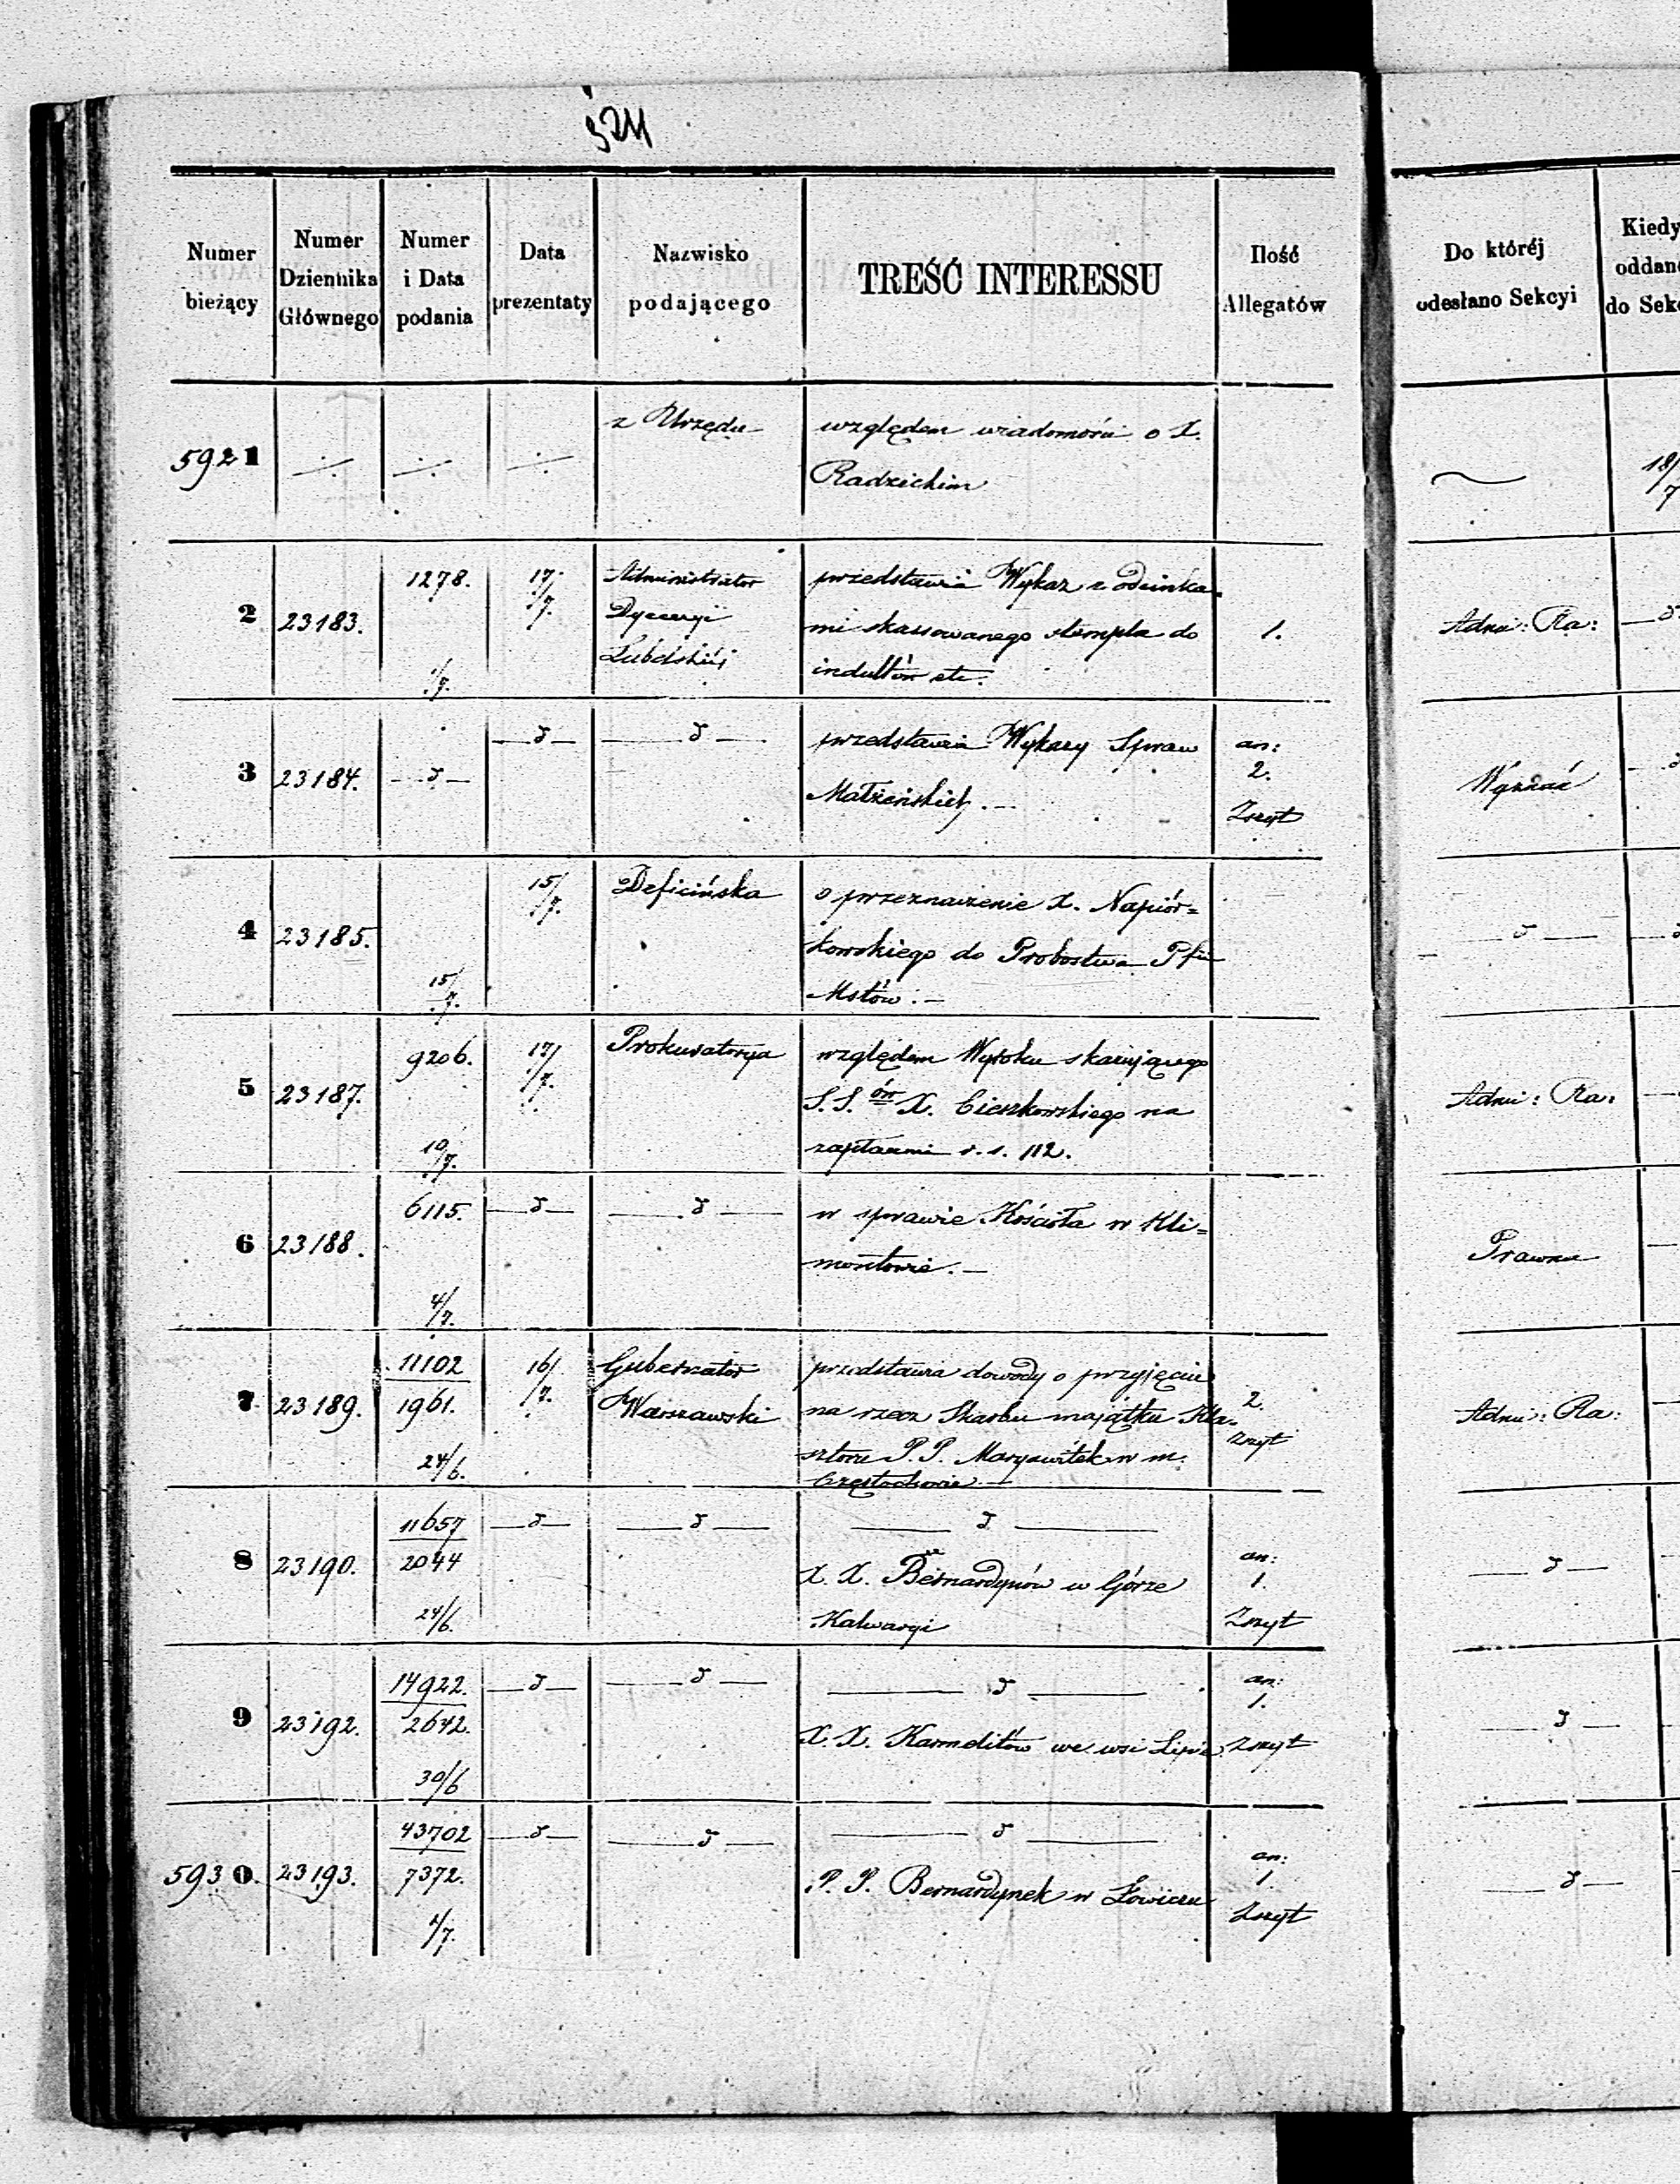 324
Numer bieżący
Numer Dziennika Głównego
Numer i Data podania
Data prezentaty
Nazwisko podającego
TREŚĆ INTERESSU
Ilość Allegatów
Do któréj odesłano Sekcyi
Kiedy oddan do Sek
5921 ÷ ÷ ÷ z Urzędu
względem wiadomości o X.
Radzickim
18/7
2 23183. 1278. 1/7. 17/7.
Administrator
Dyecezyi
Lubelskiéj
przedstawia Wykaz z odcinka-
mi skassowanego stempla do
indultów etc.
1.
Adm: Ra:
3 23184. —d— —d— —d—
przedstawia Wykazy Spraw
Małżeńskich. —
an:
2.
Zszyt
4 23185. 15/7. 15/7.
Deficińska
o przeznaczenie X. Napiór=
kowskiego do Probostwa Pfii
Mstów. —
—d—
5 23187. 9206. 10/7. 17/7.
Prokuratorya
względem Wyroku skazującego
S.S. ów X. Cieszkowskiego na
zapłacenie r. s. 112.
Adm: Ra:
6 23188. 6115. 4/7. —d— —d—
w sprawie Kościoła w Kli=
montowie. —
Prawna
7 23189. 11102
1961.
24/6.
16/7.
Gubernator
Warszawski
przedstawia dowody o przyjęciu
na rzecz Skarbu majątku Kla-
sztoru P. P. Maryawitek w m.
Częstochowie. —
2.
Zszyt
Adm: Ra:
8 23190. 11657
2044
24/6.
—d— —d— —d—
X. X. Bernardynów w Górze
Kalwaryi
an:
1.
Zszyt
—d—
9 23192. 14922.
2642.
30/6
—d— —d— —d—
X. X. Karmelitów we wsi Lipie
an:
1.
Zszyt
—d—
5930. 23193. 43702
7372.
—d— —d— —d—
P. P. Bernardynek w Łowiczu
an:
1
Zszyt
—d—